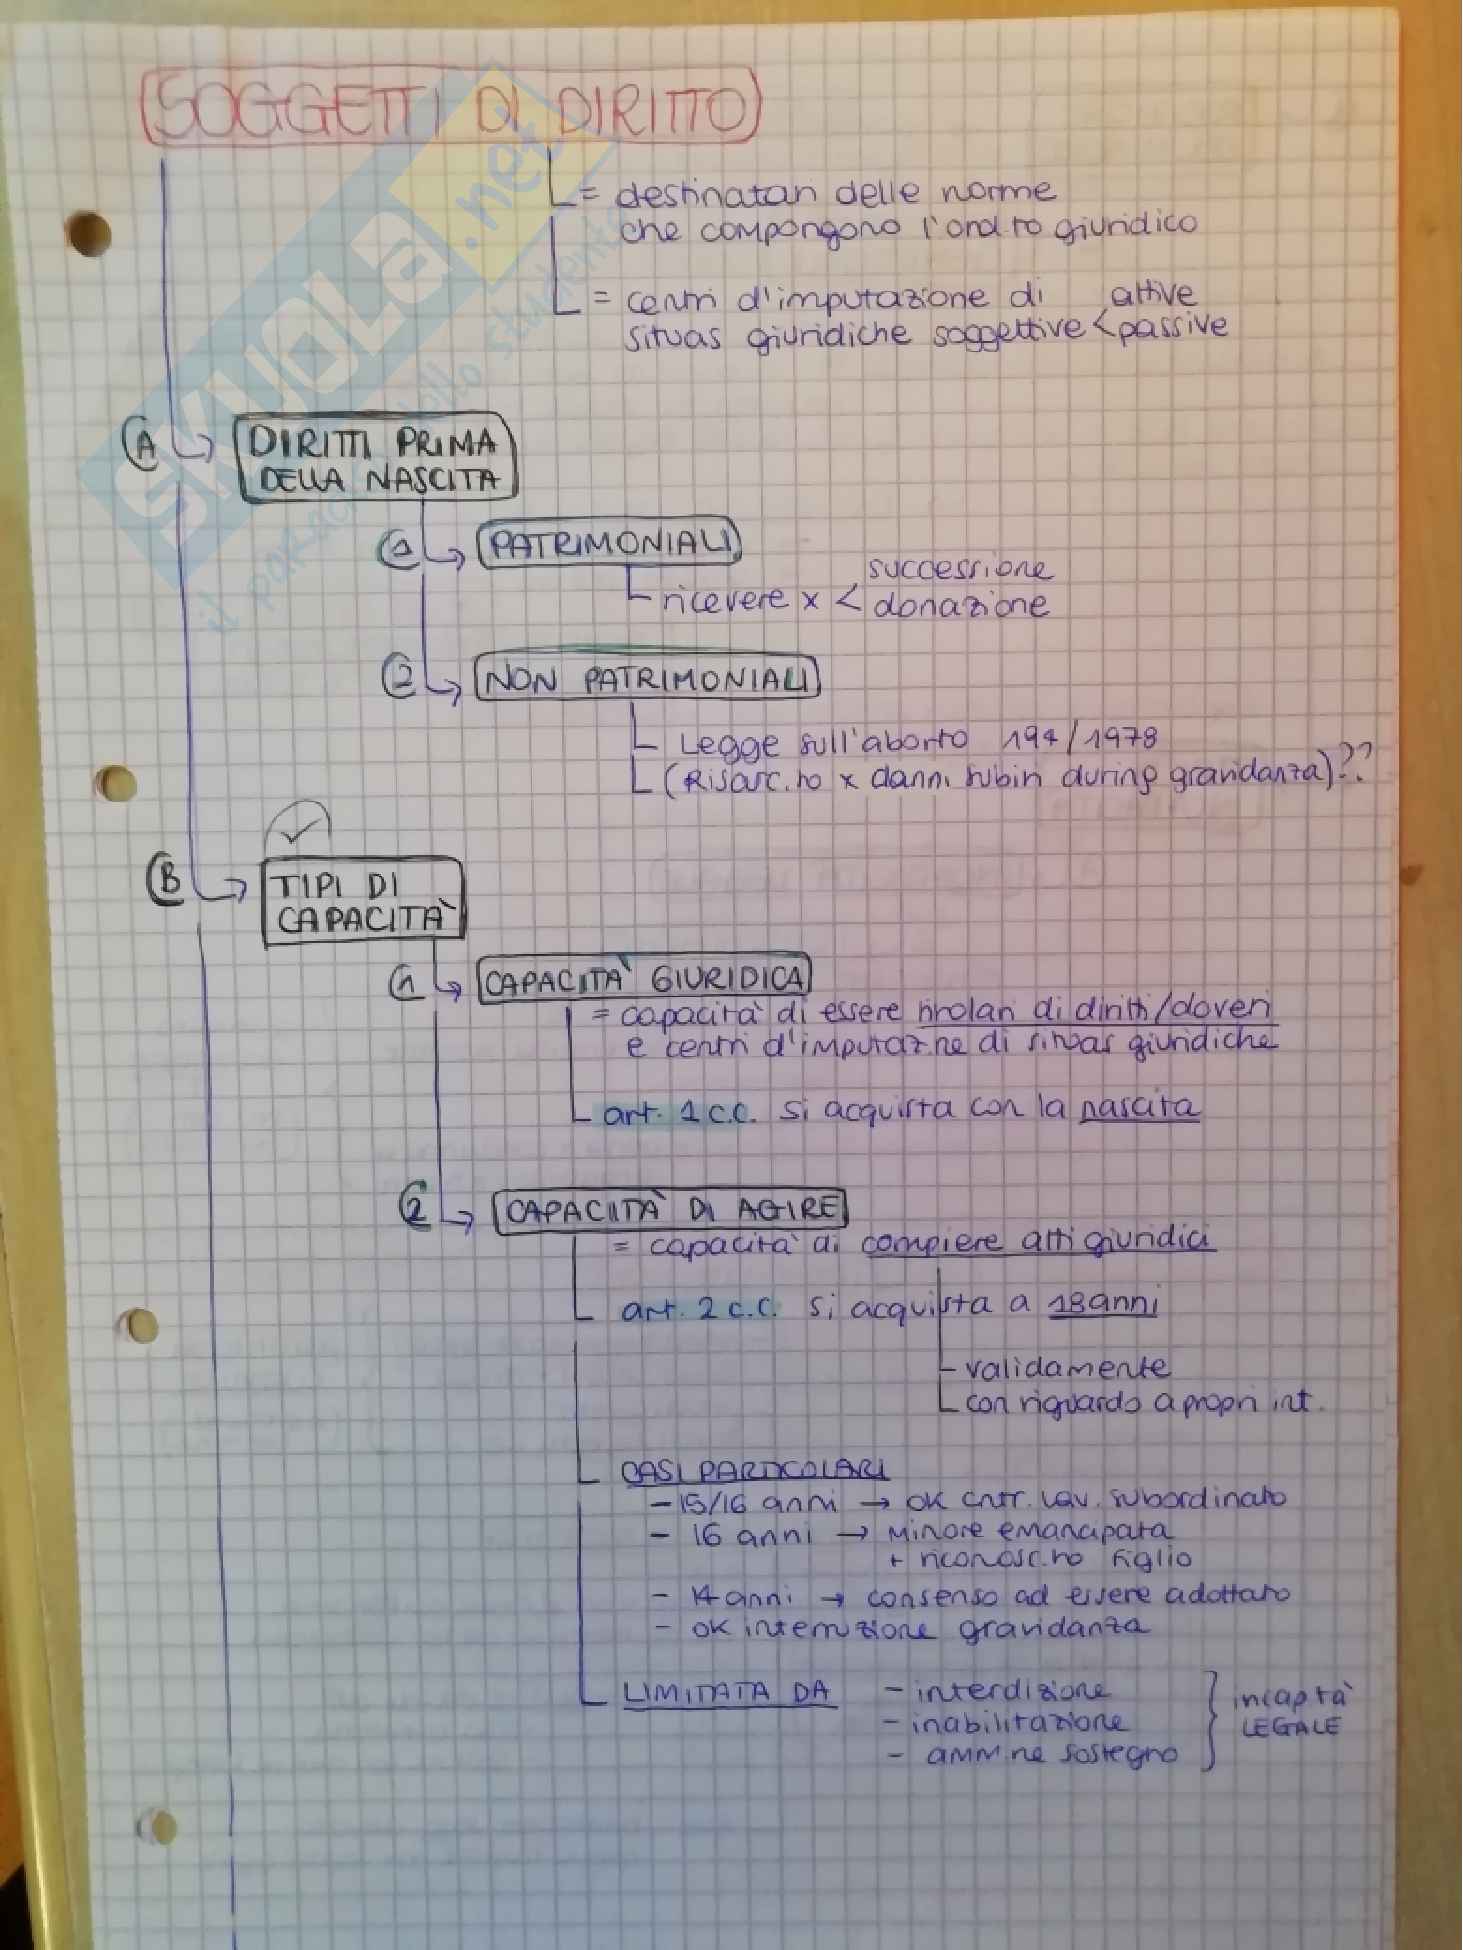 SOGGETTI DI DIRITTO
= destinatari delle norme
che compongono l'ord.to giuridico
= centri d'imputazione di attive
situas giuridiche soggettive < passive
A DIRITTI PRIMA
DELLA NASCITA
1 PATRIMONIALI
successione
ricevere x < donazione
2 NON PATRIMONIALI
Legge sull'aborto 194/1978
(Risarc.to x danni subiti during gravidanza)??
B TIPI DI
CAPACITÀ
1 CAPACITÀ GIURIDICA
= capacità di essere titolari di diritti/doveri
e centri d'imputaz.ne di situas giuridiche
art. 1 c.c. si acquista con la nascita
2 CAPACITÀ DI AGIRE
= capacità di compiere atti giuridici
art. 2 c.c. si acquista a 18 anni
- validamente
con riguardo a propri int.
CASI PARTICOLARI
- 15/16 anni → OK cntr. lav. subordinato
- 16 anni → Minore emancipata
+ riconosc.to figlio
- 14 anni → consenso ad essere adottato
- OK interruzione gravidanza
LIMITATA DA - interdizione
- inabilitazione
- amm.ne sostegno
} incap.tà
LEGALE
SKUOLA.net
il paradiso dello studente